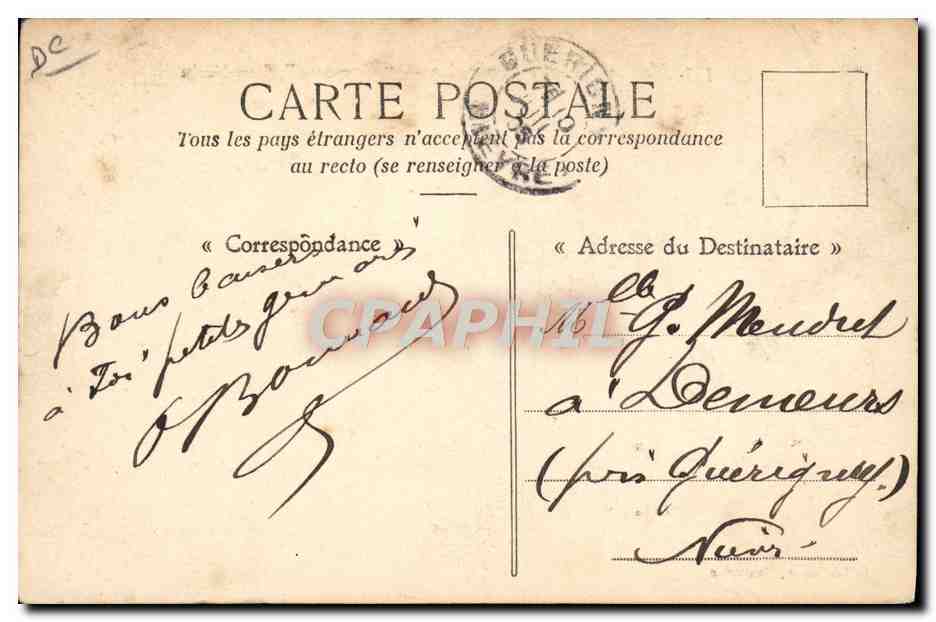 DC
CARTE POSTALE
Tous les pays étrangers n'acceptent pas la correspondance
au recto (se renseigner à la poste)
GUERIGNY
NIEVRE
« Correspondance »
Bons baisers
à Toi petits
« Adresse du Destinataire »
Mlle G. Mendret
à Demeurs
(près Guérigny)
Nièvre
CPAPHIL